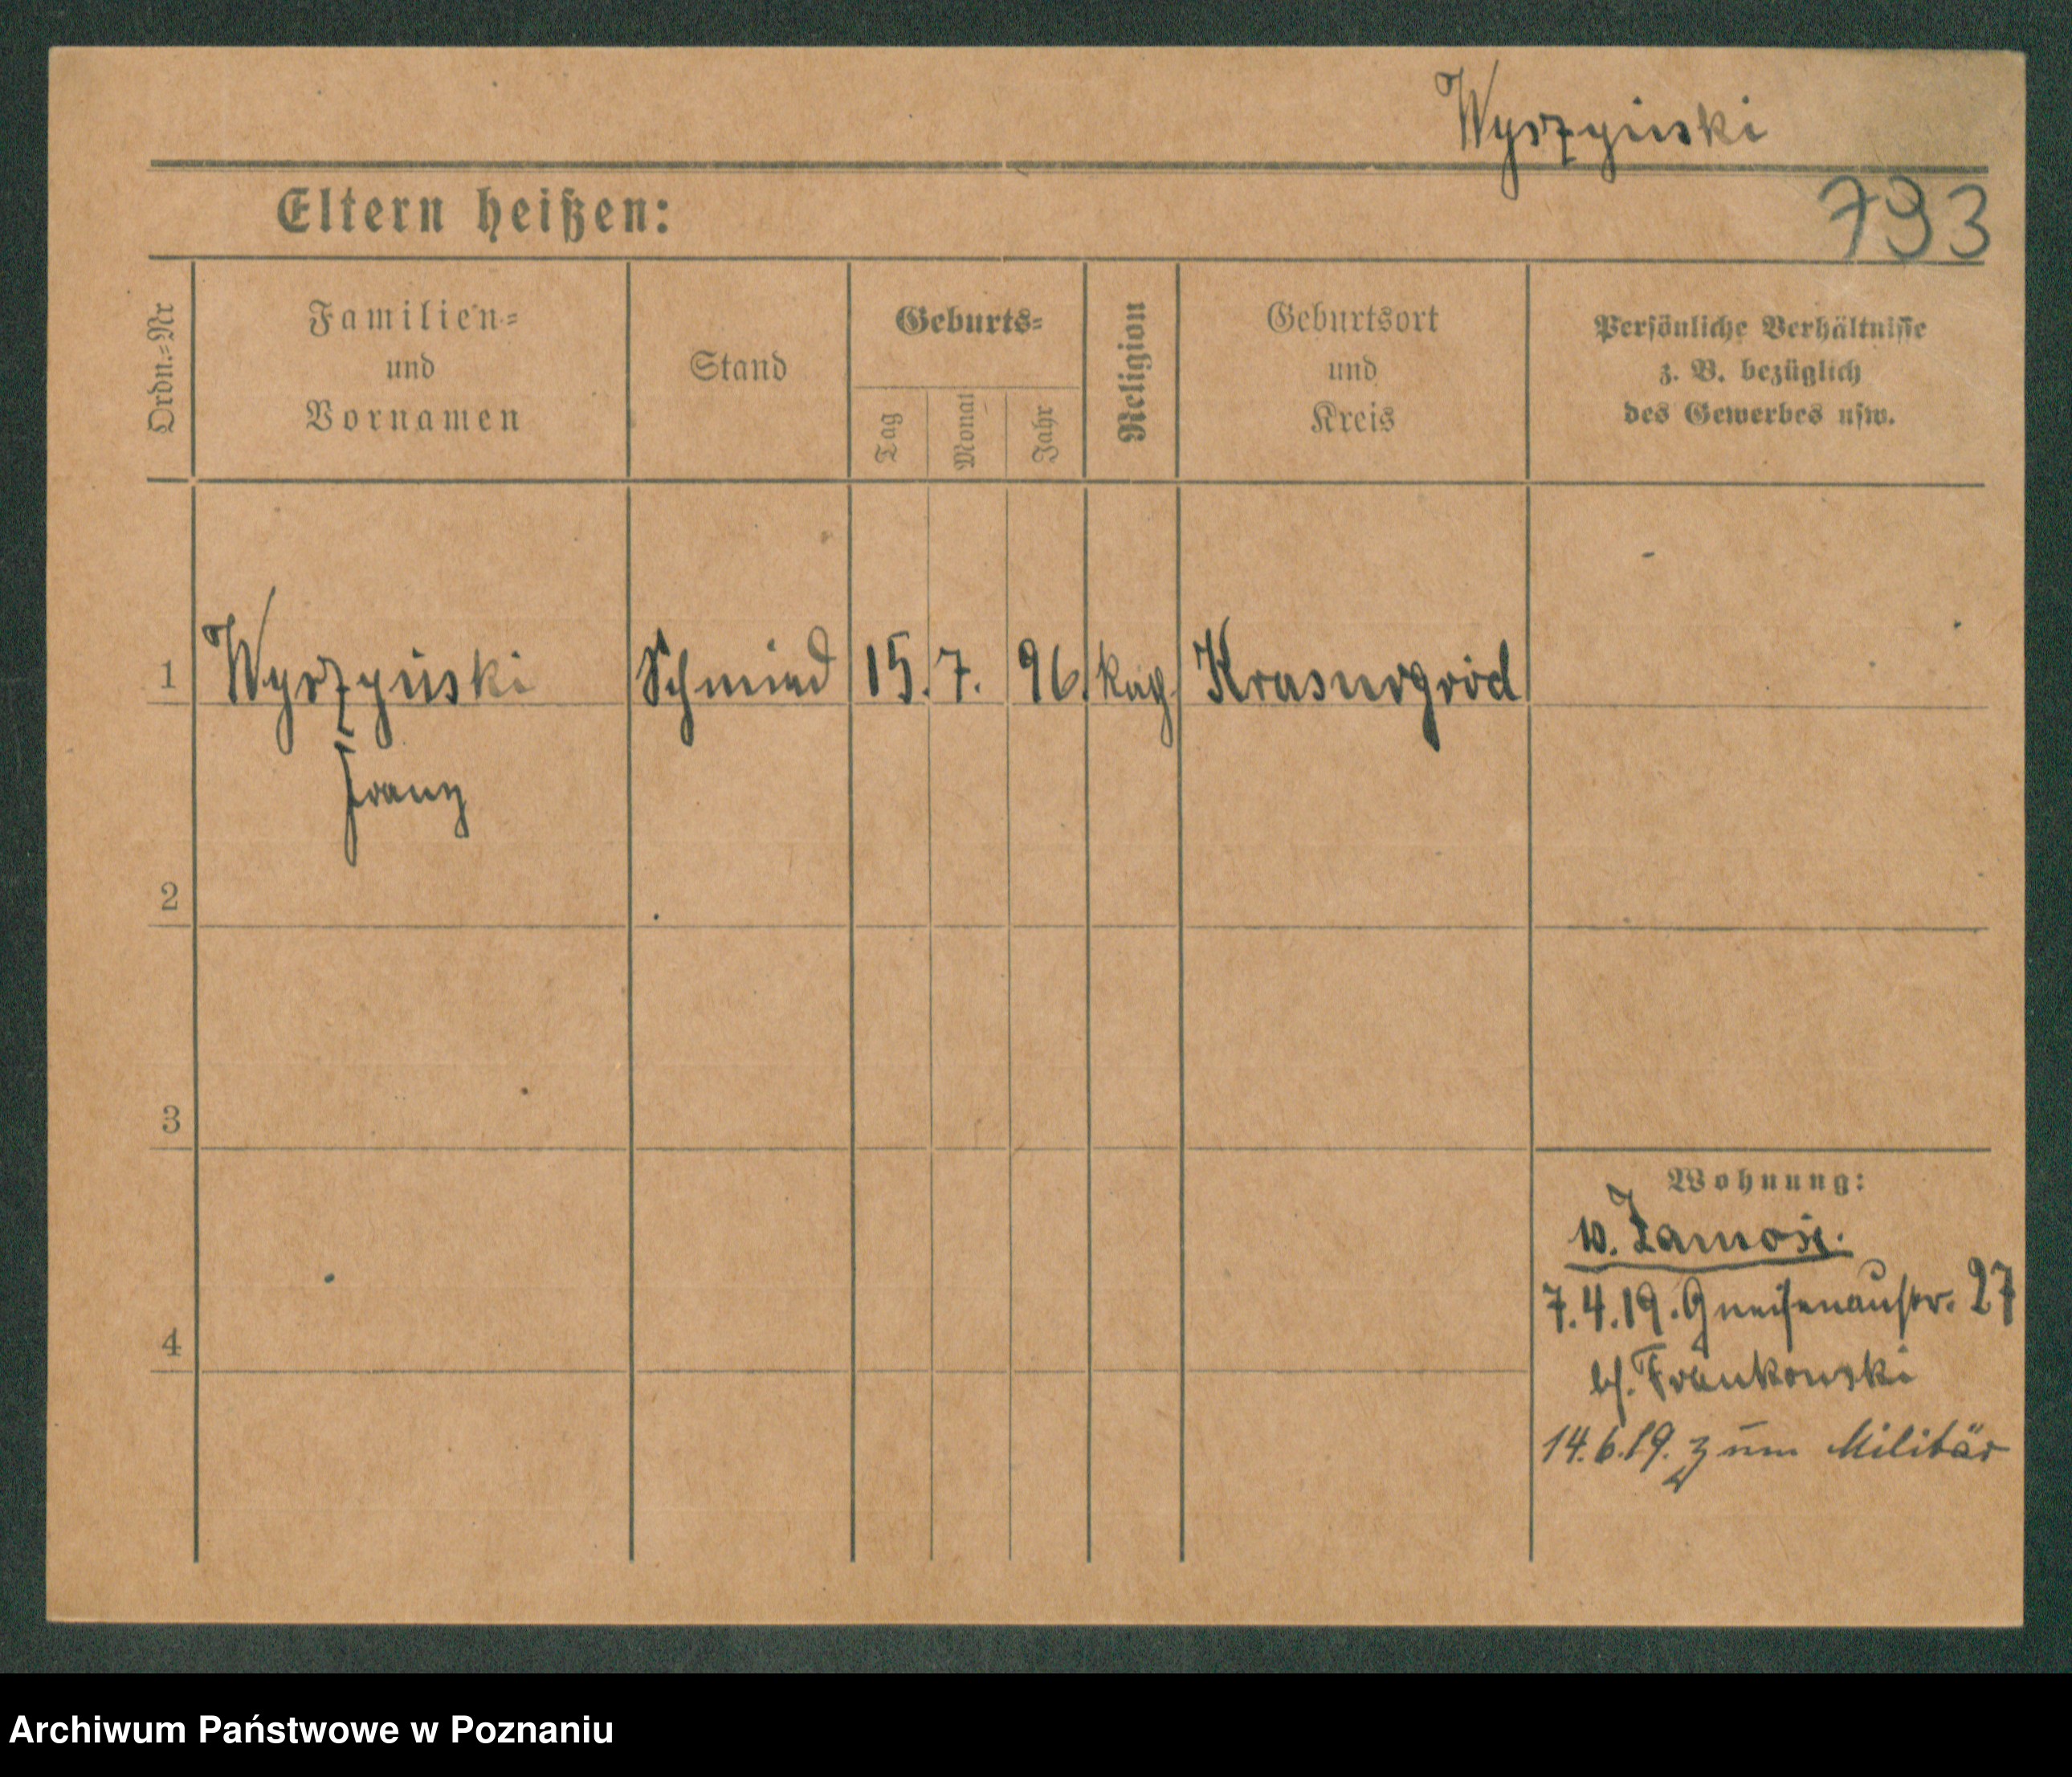 Wyszyński
793
Eltern heißen:
Ordn.-Nr
Familien- und Vornamen
Stand
Geburts-
Tag
Monat
Jahr
Religion
Geburtsort und Kreis
Persönliche Verhältnisse z. B. bezüglich des Gewerbes usw.
1 Wyszyński Schmied 15. 7. 96. Krasnogród
Franz
2
3
Wohnung:
w. Zamość.
7.4.19. Gneisenaustr. 27
4
b/. Frankowski
14.6.19. zum Militär
Archiwum Państwowe w Poznaniu